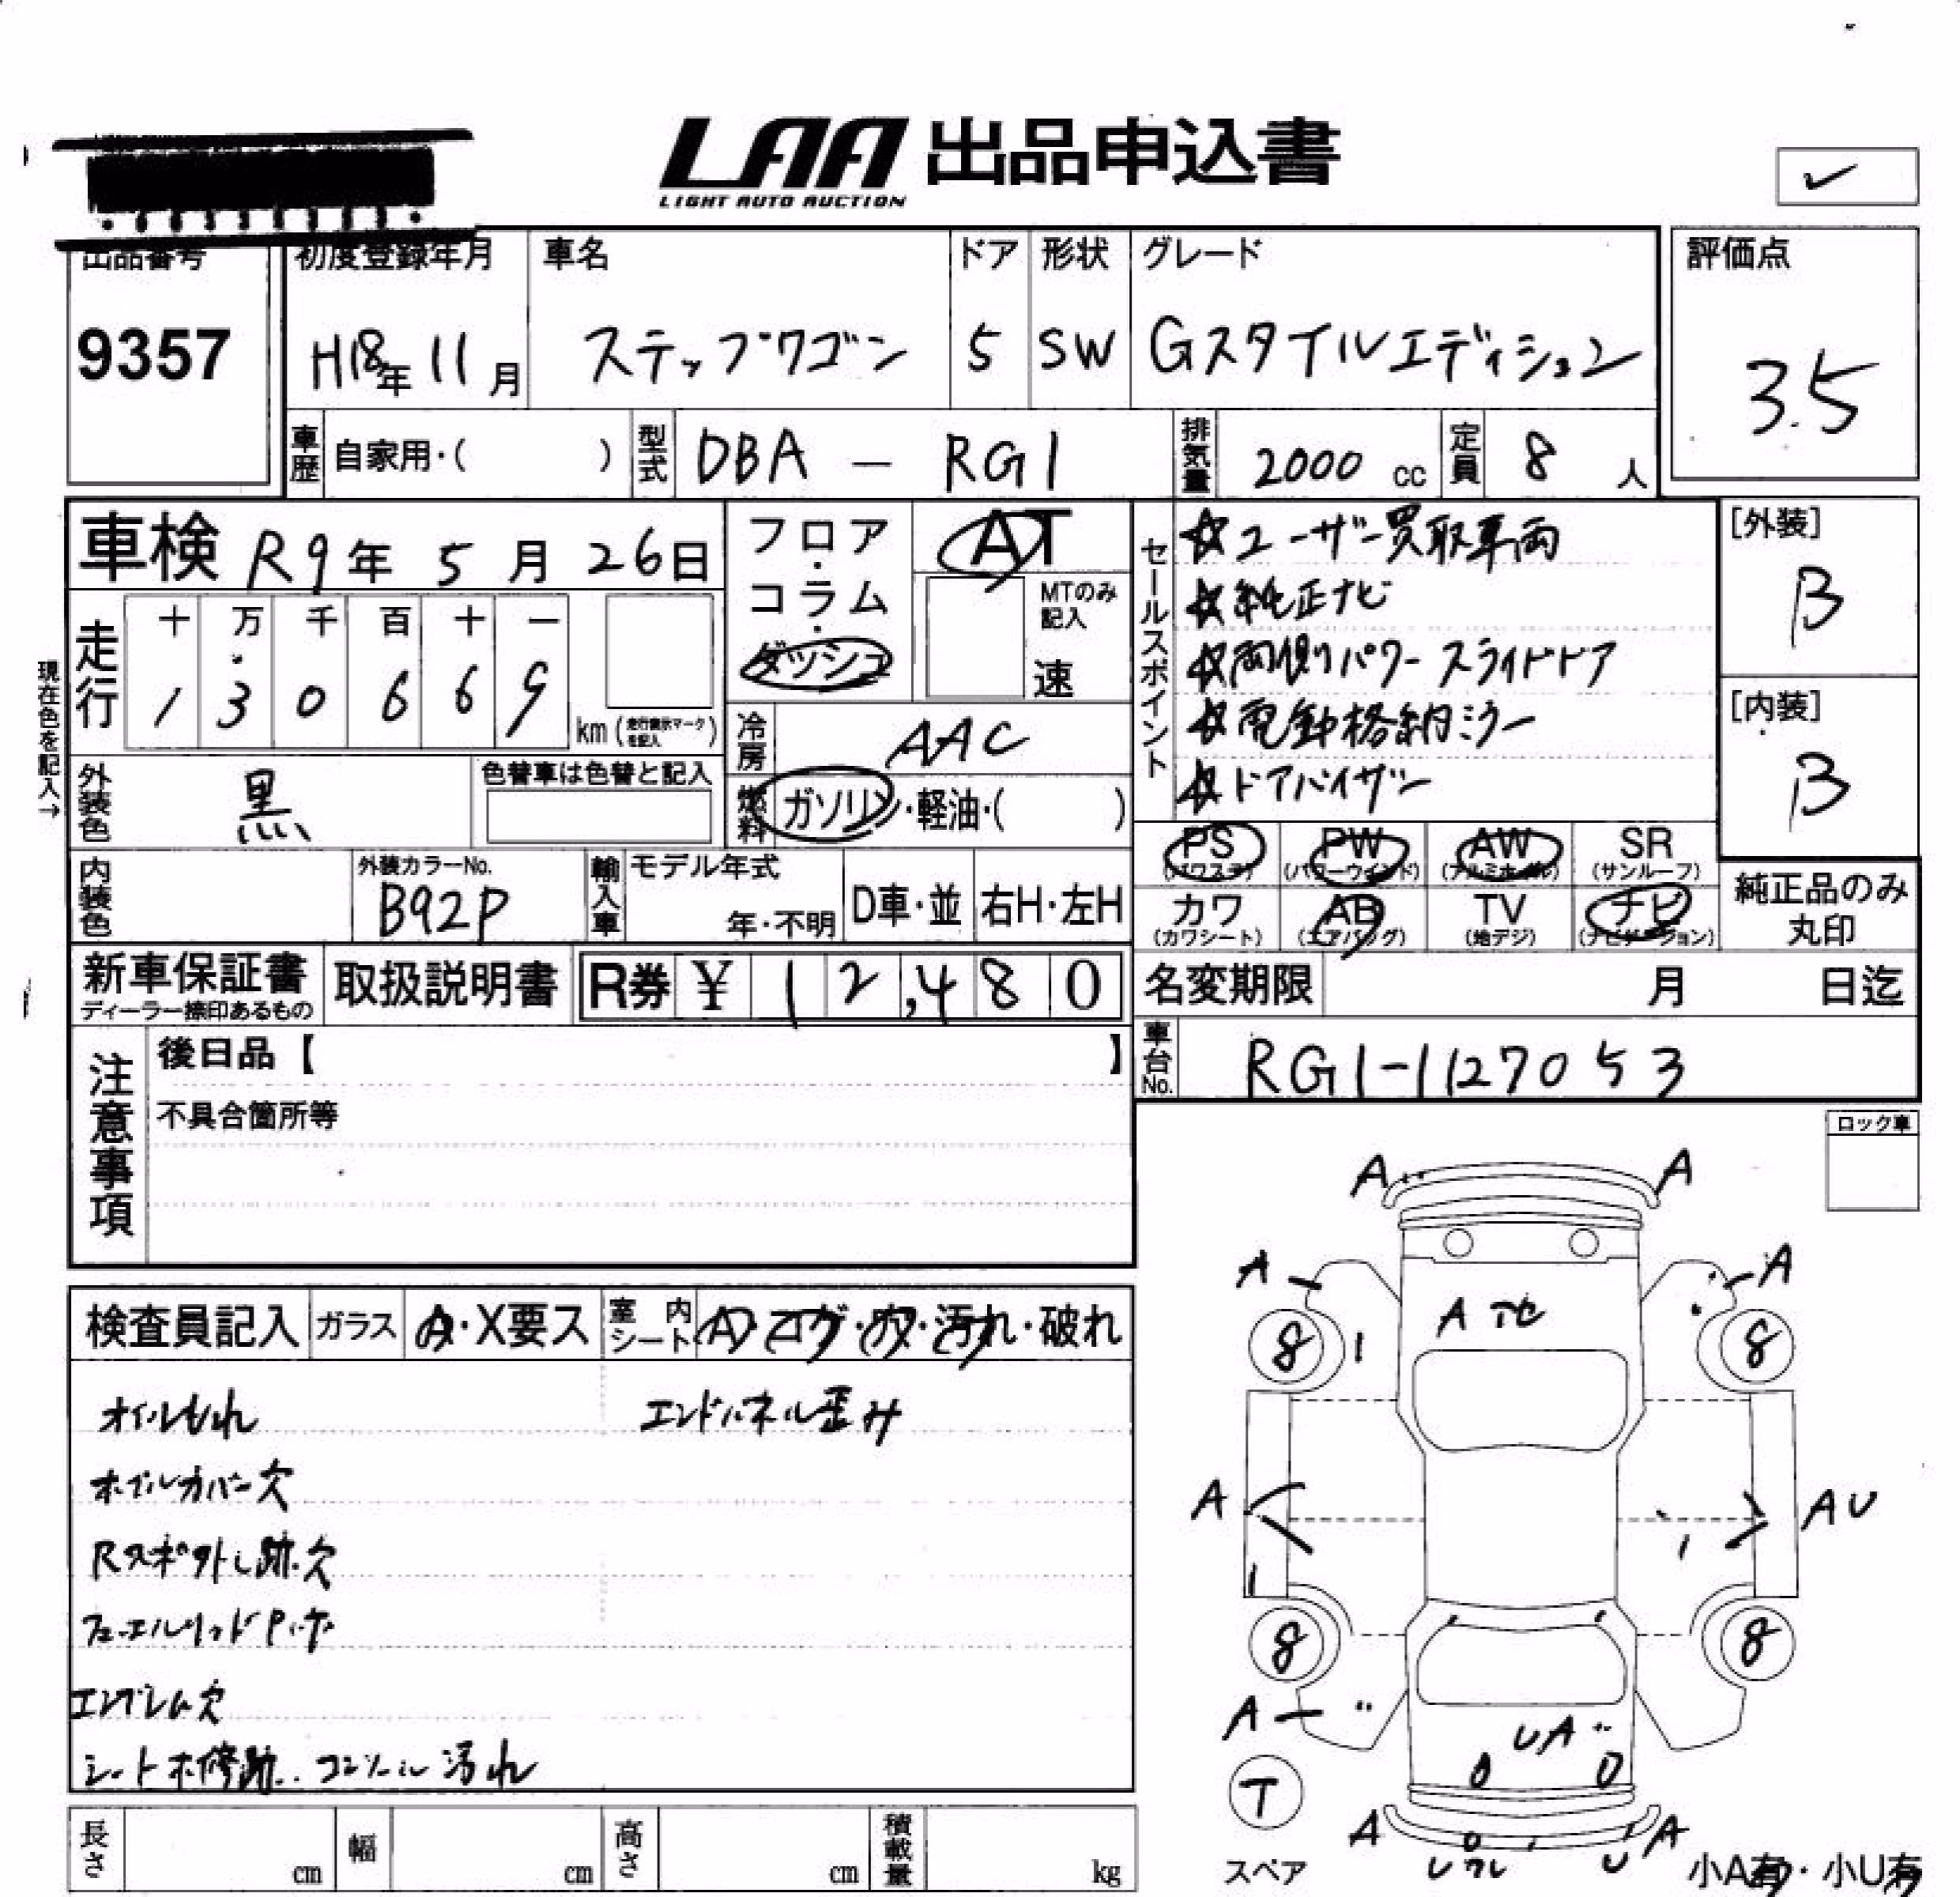 LAA 出品申込書
LIGHT AUTO AUCTION
✓
出品番号 初度登録年月 車名 ドア 形状 グレード 評価点
9357 H18年 11月 ステップワゴン 5 SW Gスタイルエディション 3.5
車歴 自家用・( ) 型式 DBA - RG1 排気量 2000 cc 定員 8 人
車検 R9年 5月 26日
フロア・コラム・ダッシュ
AT
MTのみ記入
速
セールスポイント
☆ユーザー買取車両
☆純正ナビ
☆両側パワースライドドア
☆電動格納ミラー
☆ドアバイザー
[外装]
B
[内装]
B
現在色を記入→
走行 十 万 千 百 十 一
1 3 0 6 6 9 km (走行表示マークを記入)
冷房 AAC
外装色 黒 色替車は色替と記入
燃料 ガソリン・軽油・( )
PS (パワステ) PW (パワーウインド) AW (アルミホイル) SR (サンルーフ)
カワ (カワシート) AB (エアバッグ) TV (地デジ) ナビ (ナビゲーション)
純正品のみ丸印
内装色 外装カラーNo. B92P 輸入車 モデル年式 年・不明 D車・並 右H・左H
新車保証書 ディーラー捺印あるもの 取扱説明書 R券 ¥ 12,480
名変期限 月 日迄
車台No. RG1-1127053
注意事項
後日品【 】
不具合箇所等
ロック車
検査員記入 ガラス A・X要ス 室内シート A・コゲ・穴・汚れ・破れ
オイルもれ エンドパネル歪み
ホイルカバー欠
Rスポ外し跡.欠
フューエルリッドPいた
エンブレム欠
シート木修跡.. コンソール汚れ
A A
A A
A
8 1 8
A AU
1 1
8 8
A
UA
T
スペア
A A
U U
小A有・小U有
長さ cm 幅 cm 高さ cm 積載量 kg